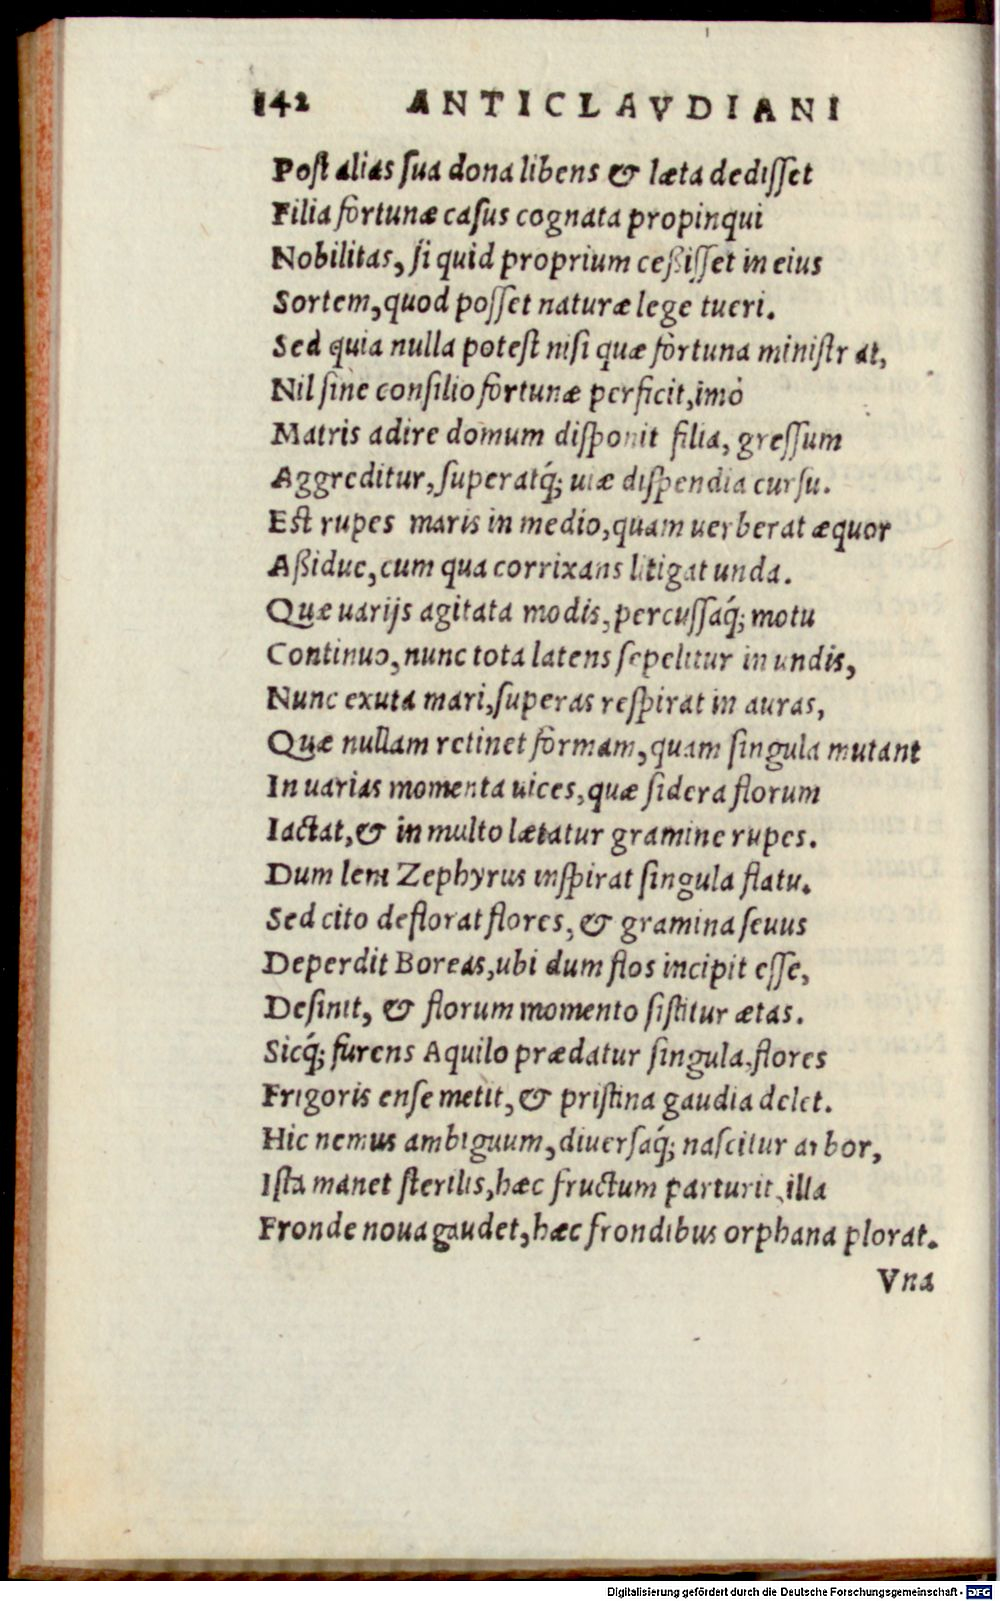 142 ANTICLAVDIANI
Poſt alias ſua dona libens & læta dediſſet
Filia fortunæ caſus cognata propinqui
Nobilitas, ſi quid proprium ceßiſſet in eius
Sortem, quod poſſet naturæ lege tueri.
Sed quia nulla poteſt niſi quæ fortuna miniſtrat,
Nil ſine conſilio fortunæ perficit, imò
Matris adire domum diſponit filia, greſſum
Aggreditur, ſuperatq́; uiæ diſpendia curſu.
Eſt rupes maris in medio, quam uerberat æquor
Aßidue, cum qua corrixans litigat unda.
Quæ uarijs agitata modis, percuſſaq́; motu
Continuo, nunc tota latens ſepelitur in undis,
Nunc exuta mari, ſuperas reſpirat in auras,
Quæ nullam retinet formam, quam ſingula mutant
In uarias momenta uices, quæ ſidera florum
Iactat, & in multo lætatur gramine rupes.
Dum leni Zephyrus inſpirat ſingula flatu.
Sed cito deflorat flores, & gramina ſeuus
Deperdit Boreas, ubi dum flos incipit eſſe,
Deſinit, & florum momento ſiſtitur ætas.
Sicq́; furens Aquilo prædatur ſingula, flores
Frigoris enſe metit, & priſtina gaudia delet.
Hic nemus ambiguum, diuerſaq́; naſcitur arbor,
Iſta manet ſterilis, hæc fructum parturit, illa
Fronde noua gaudet, hæc frondibus orphana plorat.
Vna
Digitalisierung gefördert durch die Deutsche Forschungsgemeinschaft - DFG